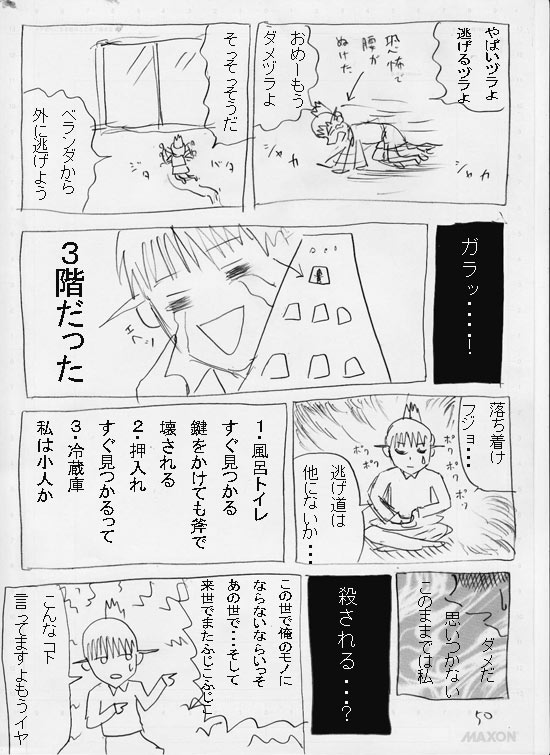 やばいヅラよ
逃げるヅラよ
恐怖で
腰が
ぬけた
おめーもう
ダメヅラよ
シャカ
シャカ
そっそっそうだ
ベランダから
外に逃げよう
バタ
ジタ
ガラッ・・・・・！
３階だった
落ち着け
フジョ・・・
逃げ道は
他にないか・・・
ポク
ポク
ポク
ポク
１・風呂トイレ
すぐ見つかる
鍵をかけても斧で
壊される
２・押入れ
すぐ見つかるって
３・冷蔵庫
私は小人か
ダメだ
思いつかない
このままでは私
殺される・・・・？
この世で俺のモノに
ならないならいっそ
あの世で・・・そして
来世でまたふじこふじこ
こんなコト
言ってますよもうイヤ
50
MAXON